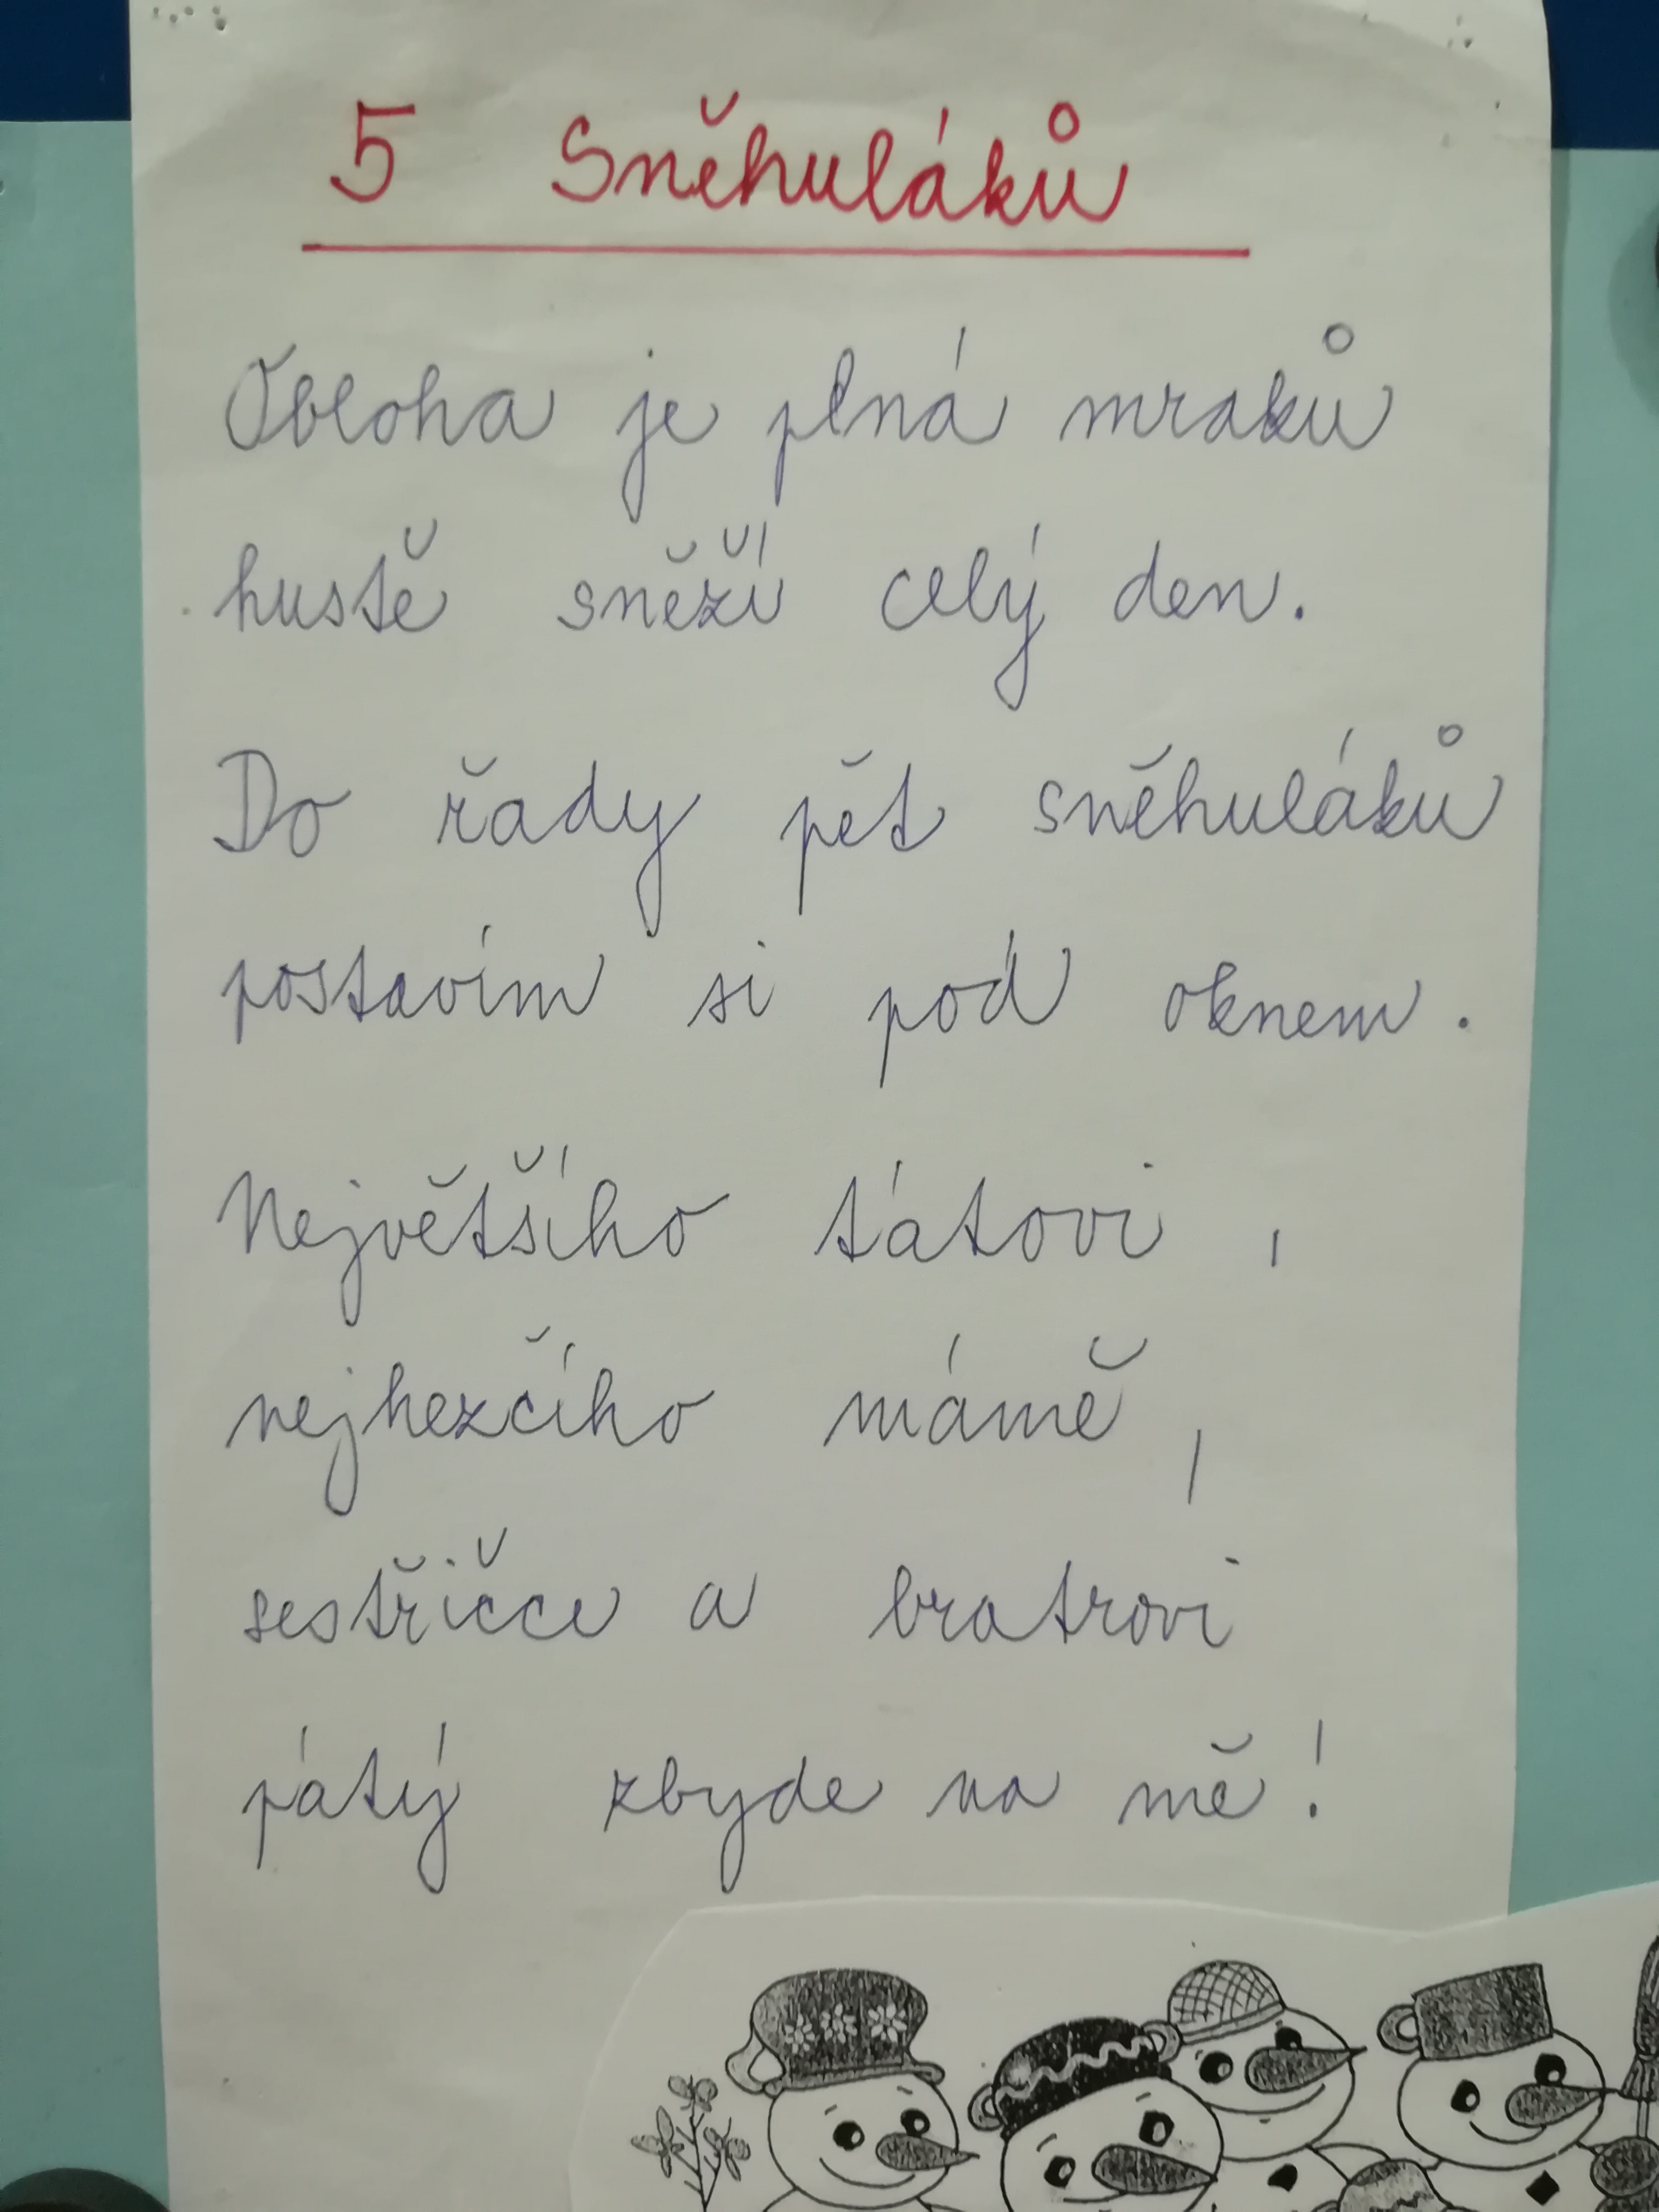 5 Sněhuláků
Obloha je plná mraků
hustě sněží celý den.
Do řady pět sněhuláků
postavím si pod oknem.
Největšího tátovi,
nejhezčího mámě,
sestřičce a bratrovi
pátý zbyde na mě!